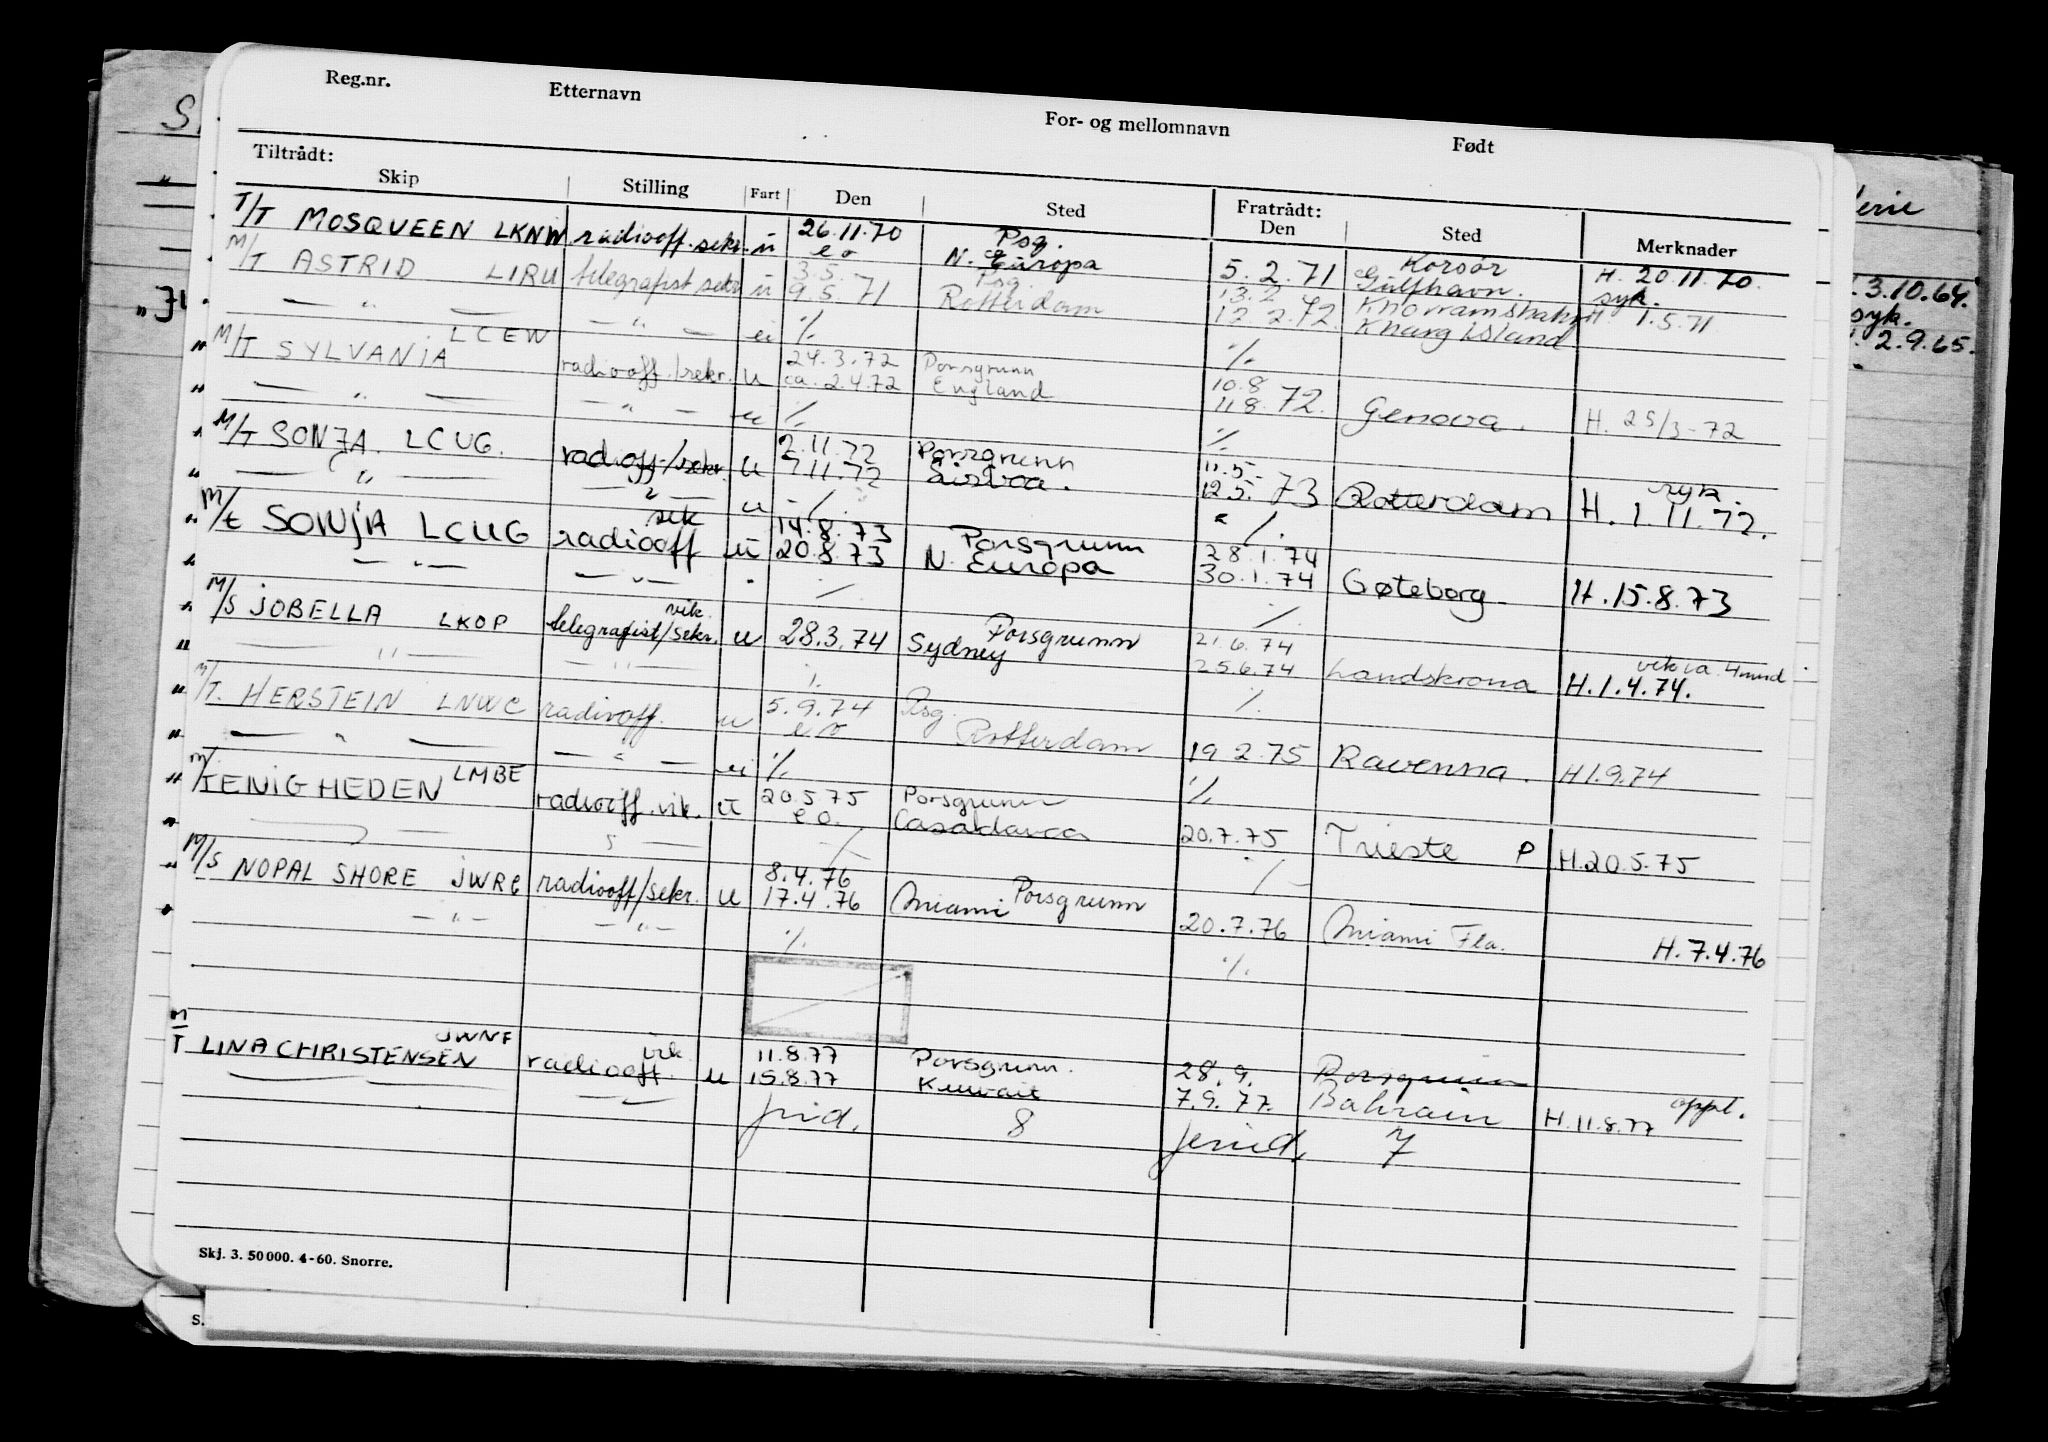 Reg.nr. Etternavn For- og mellomnavn Født
Tiltrådt: Fratrådt:
Skip Stilling Fart Den Sted Den Sted Merknader
T/T MOSQUEEN LKNW radiooff. sekr. u 26.11.70 Psg. 5.2.71 Korsør H. 20.11.70.
e o N. Europa Gulfhavn. syk.
M/T ASTRID LIRU telegrafist sekr u 3.5. Psg. 13.2 Khorramshahr H 1.5.71
9.5.71 Rotterdam 12.2.72. Kharg island
— " — — " — u ·/· ·/·
M/T SYLVANIA LCEW radiooff./sekr. u 24.3.72 Porsgrunn 10.8
ca. 2.4.72 England 11.8.72. Genova. H. 25/3-72
— " — — " — u ·/· ·/·
M/T SONJA. LCUG. radiooff/sekr. u 2.11.72 Porsgrunn 11.5. syk.
7.11.72 Lisboa. 12.5.73 Rotterdam H. 1.11.72.
— " — — " — u ·/· ·/·
M/t SONJA LCUG radiooff sek u 14.8.73 Porsgrunn 28.1.74
20.8.73 N. Europa 30.1.74 Gøteborg H. 15.8.73
— " — — " — " ·/· ·/·
M/S JOBELLA LKOP telegrafist/sekr. vik. u 28.3.74 Porsgrunn 21.6.74 vik ca. 4 mnd
Sydney 25.6.74 Landskrona H. 1.4.74.
— " — — " — ·/· ·/·
M/T. HERSTEIN LNWC radiooff. u 5.9.74 Psg.
e o Rotterdam 19 2.75 Ravenna. H 1.9.74
— " — — " — u ·/· ·/·
M/T ENIGHEDEN LMBE radiooff. vik. u 20.5.75 Porsgrunn
e o. Casablanca 20.7.75 Trieste P H.20.5.75
— " — — " — ·/· ·/·
M/S NOPAL SHORE JWRG radiooff/sekr. u 8.4.76 Porsgrunn
17.4.76 Miami 20.7.76 Miami Fla. H. 7.4.76
— " — — " — ·/· ·/·
M/T LINA CHRISTENSEN JWNF radiooff. vik. u 11.8.77 Porsgrunn. 28.9. Porsgrunn
15.8.77 Kuwait 7.9.77. Bahrain H. 11.8.77 oppl.
8 7
Skj. 3. 50000. 4-60. Snorre.
3.10.64.
syk.
2.9.65.